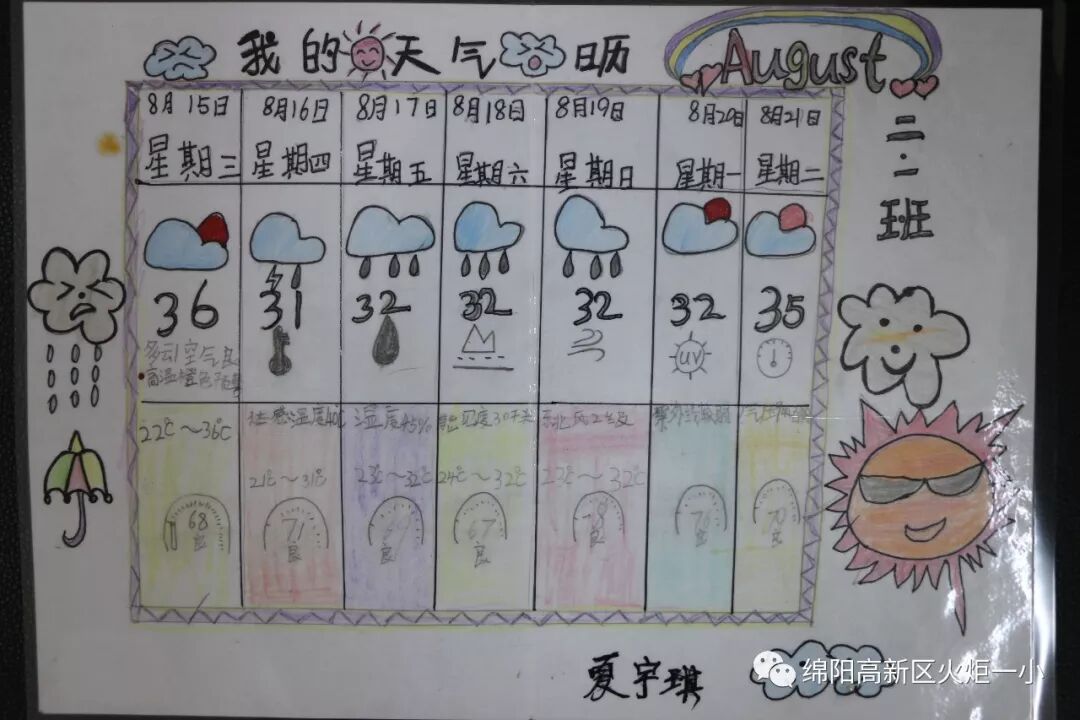 我的天气日历
August
二.二班
8月15日 8月16日 8月17日 8月18日 8月19日 8月20日 8月21日
星期三 星期四 星期五 星期六 星期日 星期一 星期二
36 31 32 32 32 32 35
uv
多云 空气良
高温橙色预警
体感温度40℃ 湿度45% 能见度30千米 东北风2级 紫外线
22℃~36℃
21℃~31℃ 23℃~32℃ 24℃~32℃ 23℃~32℃
68 71 67 70
良 良 良 良 良
夏宇琪
绵阳高新区火炬一小